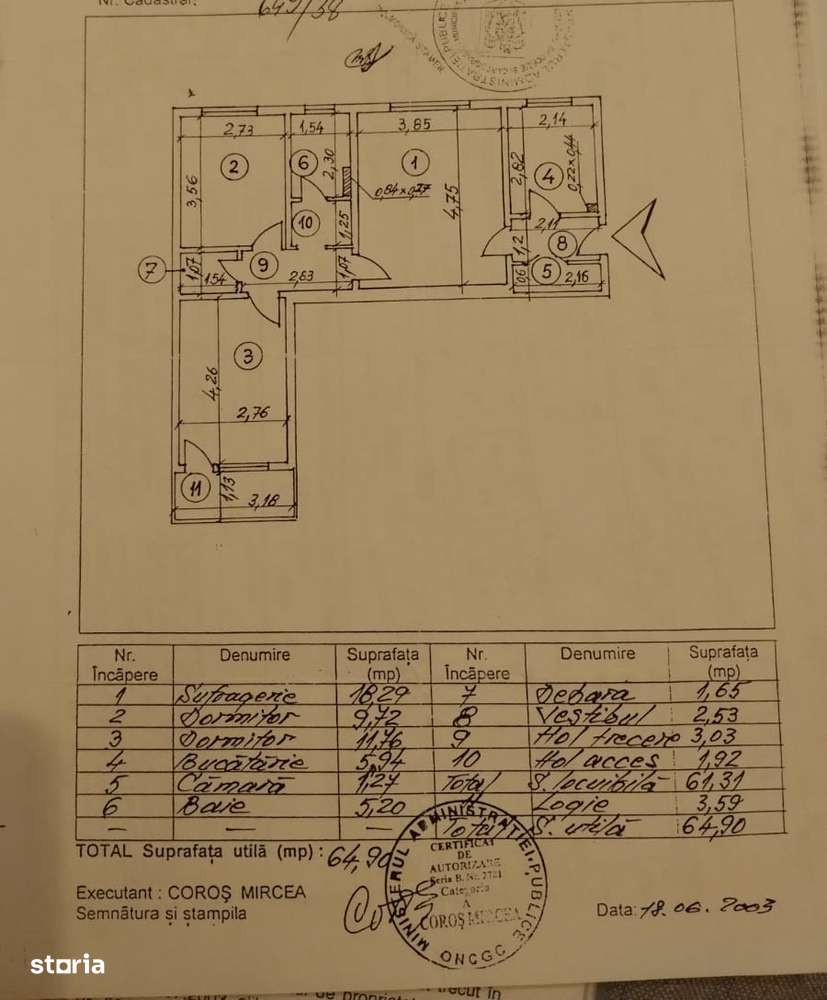 Nr. Cadastral:
649/38
2,73
1,54
3,85
2,14
2
6
1
4
3,56
2,30
0,84 x 0,77
4,75
2,82
0,22 x 0,44
10
1,25
2,11
8
1,2
7
1,07
9
1,54
2,63
1,07
5
2,16
3
4,26
2,76
11
1,13
3,18
Nr. Încăpere Denumire Suprafața (mp) Nr. Încăpere Denumire Suprafața (mp)
1 Sufragerie 18,29 7 Debara 1,65
2 Dormitor 9,72 8 Vestibul 2,53
3 Dormitor 11,76 9 Hol trecere 3,03
4 Bucătărie 5,94 10 Hol acces 1,92
5 Cămară 1,27 Total S. locuibilă 61,31
6 Baie 5,20 11 Logie 3,59
— — — Total S. utilă 64,90
TOTAL Suprafața utilă (mp) : 64,90
Executant : COROȘ MIRCEA
Semnătura și ștampila
MINISTERUL ADMINISTRAȚIEI PUBLICE
CERTIFICAT
DE
AUTORIZARE
Seria B. Nr. 2781
Categoria
A
COROȘ MIRCEA
ONCGC
Data: 18.06.2003
storia